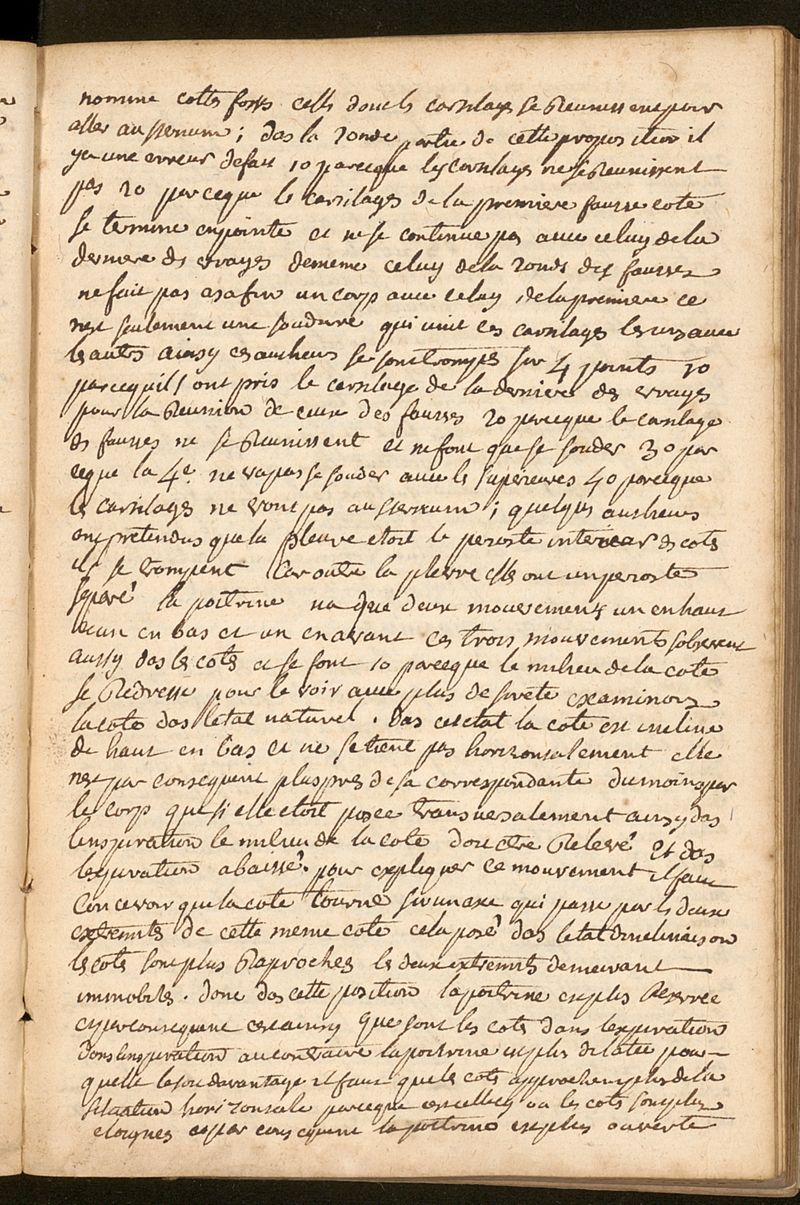 nomme cottes fosses celles dont ls cartilages se Reunissent pour
aller au sternum ; das la 2onde partie de cette proposition il
y a une erreur de fait 10 parceque les cartilages ne se Reunissent
pas 20 parceque le cartilages de la premiere fausse cote
se termine en pointe et ne se continue pas avec celuy de la
derniere ds vrayes de meme celuy de la 2onde des fausses
ne fait pas un corp avec celuy de la premiere ce
nest seulement une soudure qui unit ces cartilages les uns avec
les autres ainsy ces autheurs se sont trompes sur 4 points 10
parcequils ont pris le cartilage de la derniere des vrayes
pour la Reunion de ceux des fausses 20 parceque le cartilage
ds fausses ne se Reunissent et ne font que se souder 30 par
ceque la 4e ne va pas se souder avec ls superieures 40 parceque
ls cartilages ne vont pas au sternum ; quelques autheurs
ont pretendus que la pleuvre etoit le perioste interieur ds cotes
ils se trompent car outre la plevre elles ont un perioste
separé la poitrine na que deux mouvements un en haut
un en bas et un en avant ces trois mouvements sobservent
aussy das ls cotes et se font 10 parceque le milieu de la cote
se Redresse pour le voir avec plus de sureté examinons
la cote das letat naturel . das cet etat la cote est incline
de haut en bas et ne se tient pas horizontalement elle
nest par consequent plus pres de sa correspondante du moins par
le corp que si elle etoit posee transversalement ainsy das
linspiration le milieu de la cote doit etre Relevé et das
lexpiration abaissé . pour expliquer ce mouvement il faut
concevoir que la cote tourne sur un axe qui passe par ls deux
extremits de cette meme cote cela posé das letat dinclinaison
ls cots sont plus Raproches ls deux extremits demeurant
immobiles . donc das cette position la poitrine est plus Reserree
et par consequent cest ainsy que sont les cots dans lexpiration
dans linspiration au contraire la poitrine est plus dilatée pour
quelle le soit davantage il faut que ls cots approchent plus de la
situation horizontale parceque cest celle ou les cots sont plus
eloignes et par consequent la poitrine est plus ouverte